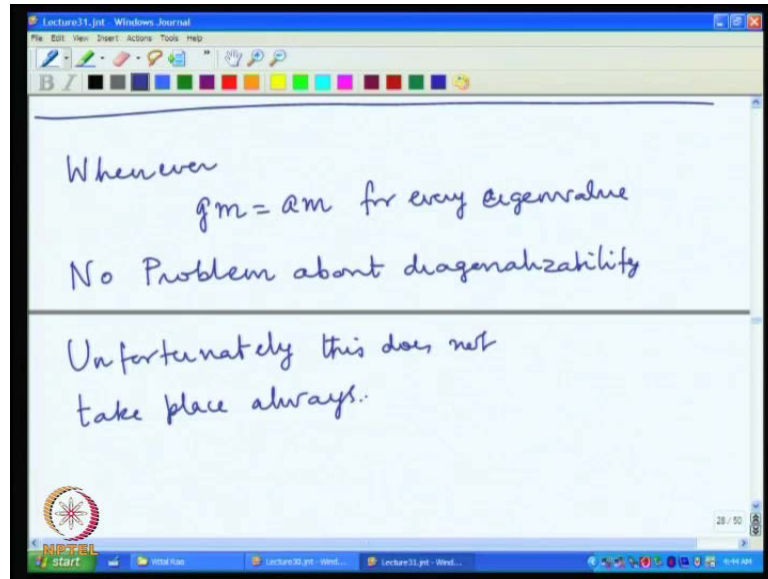 Lecture31.jnt - Windows Journal
File Edit View Insert Actions Tools Help
B I
Whenever
gm = am for every eigenvalue
No Problem about diagonalizability
Unfortunately this does not
take place always..
28 / 50
NPTEL
start Vittal Rao Lecture30.jnt - Wind... Lecture31.jnt - Wind... 4:44 AM